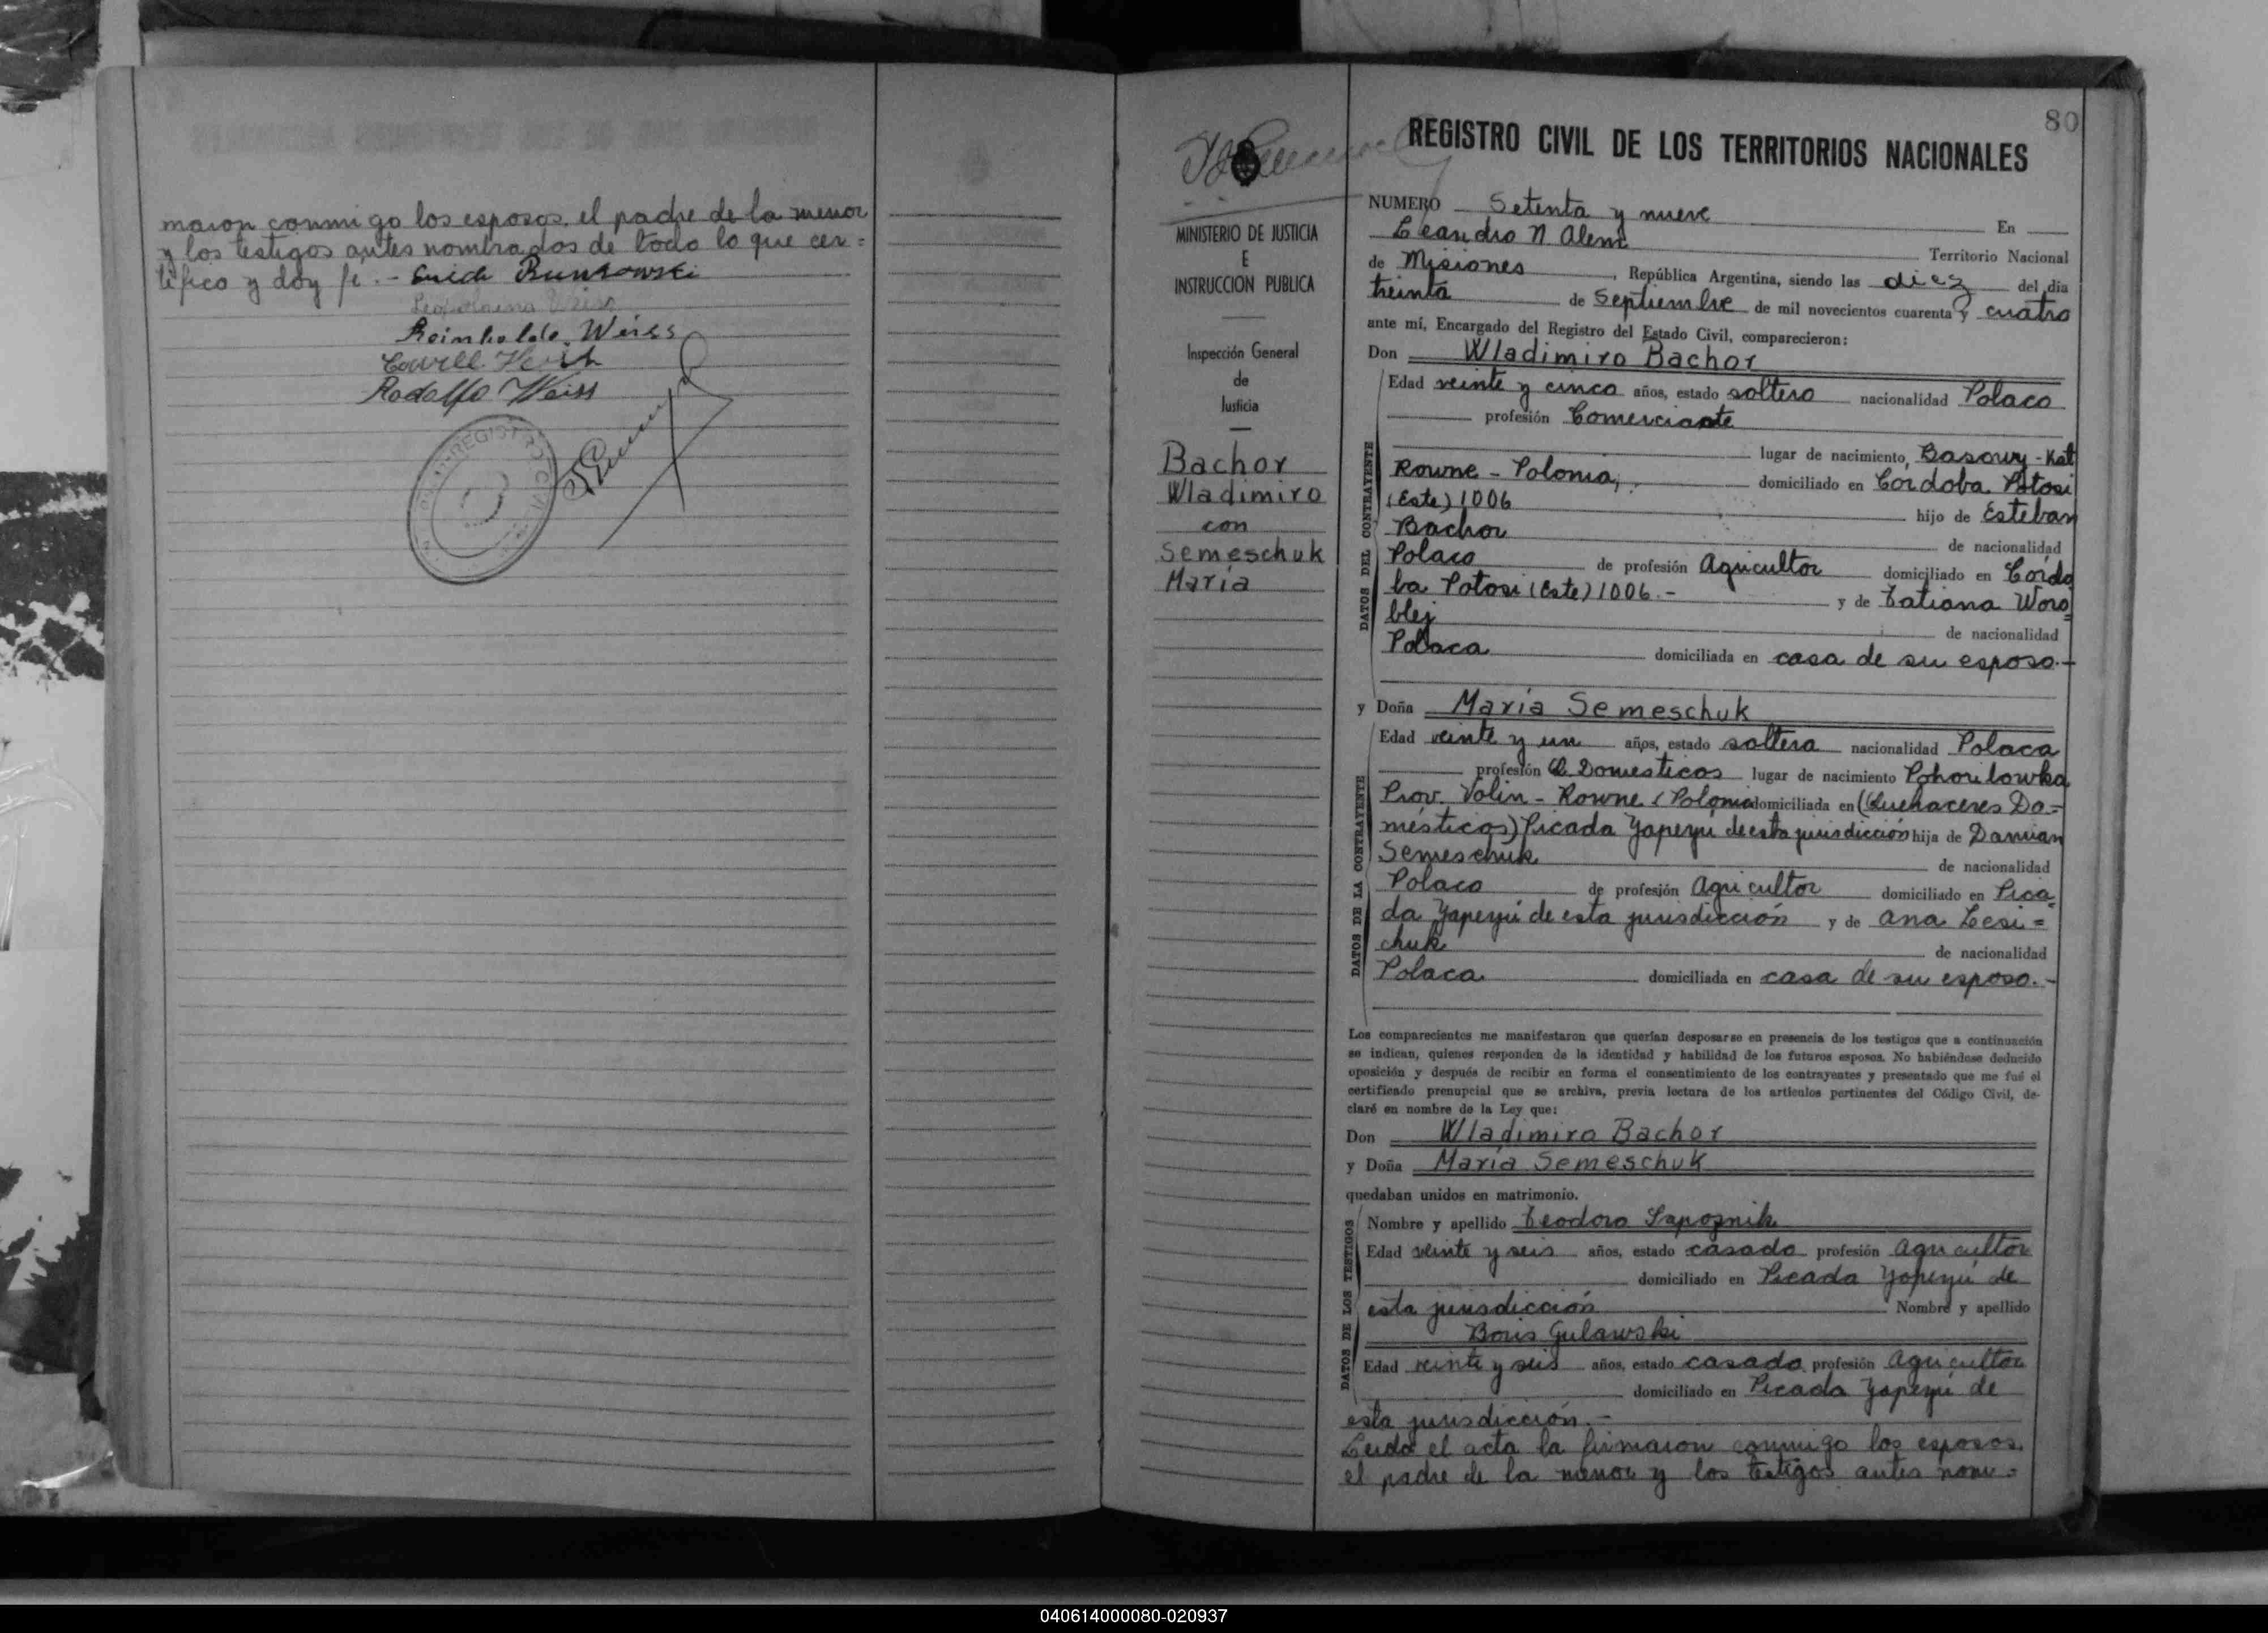 maron conmigo los esposos, el padre de la menor
y los testigos antes nombrados de todo lo que cer=
tifico y doy fé.-
Reinholdo Weiss
Rodolfo Weiss
REGISTRO CIVIL
80
REGISTRO CIVIL DE LOS TERRITORIOS NACIONALES
MINISTERIO DE JUSTICIA
E
INSTRUCCION PUBLICA
Inspección General
de
Justicia
Bachor
Wladimiro
con
Semeschuk
María
NUMERO Setenta y nueve En
Leandro N. Alem Territorio Nacional
de Misiones, República Argentina, siendo las diez del dia
treinta de Septiembre de mil novecientos cuarenta y cuatro
ante mí, Encargado del Registro del Estado Civil, comparecieron:
Don Wladimiro Bachor
DATOS DEL CONTRAYENTE
Edad veinte y cinco años, estado soltero nacionalidad Polaco
profesión Comerciante
lugar de nacimiento, Basowy-Kat
Rowne - Polonia, domiciliado en Cordoba Potosi
(Este) 1006 hijo de Esteban
Bachor de nacionalidad
Polaco de profesión Agricultor domiciliado en Cordo
ba Potosi (Este) 1006.- y de Tatiana Woro=
blej de nacionalidad
Polaca domiciliada en casa de su esposo.-
y Doña María Semeschuk
DATOS DE LA CONTRAYENTE
Edad veinte y un años, estado soltera nacionalidad Polaca
profesión Q. Domesticos lugar de nacimiento Pohorilowka
Prov. Volin - Rowne (Polonia domiciliada en (Quehaceres Do=
mésticos) Picada Yapeyú de esta jurisdicción hija de Damian
Semeschuk de nacionalidad
Polaco de profesión Agricultor domiciliado en Pica=
da Yapeyú de esta jurisdicción y de Ana Lesi=
chuk de nacionalidad
Polaca domiciliada en casa de su esposo.-
Los comparecientes me manifestaron que querían desposarse en presencia de los testigos que a continuación
se indican, quienes responden de la identidad y habilidad de los futuros esposos. No habiéndose deducido
oposición y después de recibir en forma el consentimiento de los contrayentes y presentado que me fué el
certificado prenupcial que se archiva, previa lectura de los artículos pertinentes del Código Civil, de-
claré en nombre de la Ley que:
Don Wladimiro Bachor
y Doña María Semeschuk
quedaban unidos en matrimonio.
DATOS DE LOS TESTIGOS
Nombre y apellido Teodoro Sapoznik
Edad veinte y seis años, estado casado profesión Agricultor
domiciliado en Picada Yapeyú de
esta jurisdicción Nombre y apellido
Boris Gulawski
Edad veinte y seis años, estado casado profesión Agricultor
domiciliado en Picada Yapeyú de
esta jurisdicción.-
Leida el acta la firmaron conmigo los esposos,
el padre de la menor y los testigos antes nom=
040614000080-020937